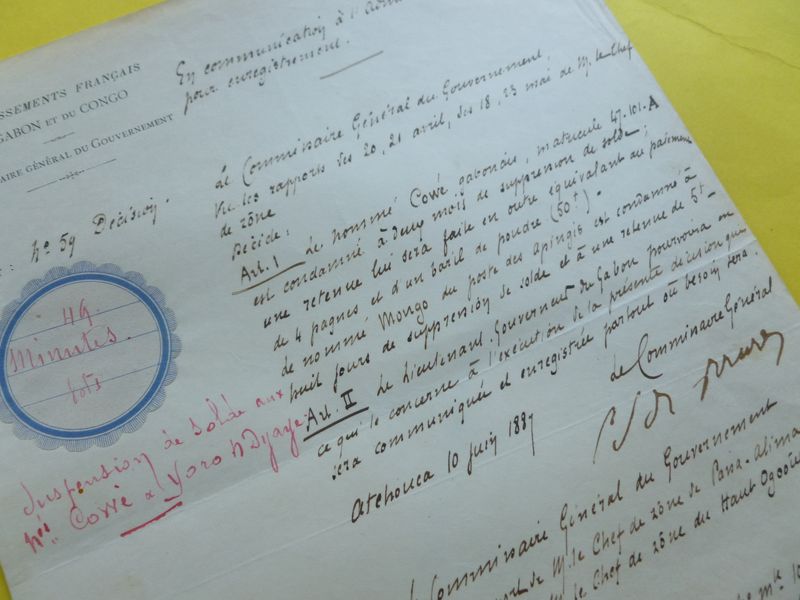 SSEMENTS FRANÇAIS
GABON ET DU CONGO
AIRE GÉNÉRAL DU GOUVERNEMENT
En communication à l'Adm
pour enregistrement.
Nº 59 Décision.
Le Commissaire Général du Gouvernement,
Vu les rapports des 20, 21 avril, des 18, 23 mai de M. le Chef
de zône
Décide:
Art. I Le nommé Cowé gabonais, matricule 47.101.A
est condamné à deux mois de suppression de solde;
une retenue lui sera faite en outre équivalant au paiement
de 4 pagnes et d'un baril de poudre (50f).
Le nommé Mongo du poste des Apingis est condamné à
huit jours de suppression de solde et à une retenue de 5f-
Art. II Le Lieutenant-Gouverneur du Gabon pourvoira en
ce qui le concerne à l'exécution de la présente décision qui
sera communiquée et enregistrée partout où besoin sera.
Atchouca 10 juin 1887
Le Commissaire Général
49
Minutes
Suspension de solde aux
nés Cowé & Yoro N'Dyaye
Commissaire Général du Gouvernement
de M. le Chef de zône de Pana-Alima
le Chef de zône du Haut Ogooué
mle